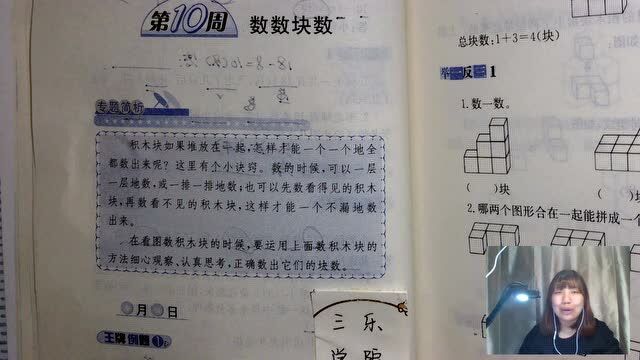 第10周 数数块数
专题简析
积木块如果堆放在一起,怎样才能一个一个地全
都数出来呢?这里有个小诀窍。数的时候,可以一层
一层地数,或一排一排地数;也可以先数看得见的积木
块,再数看不见的积木块,这样才能一个不漏地数
出来。
在看图数积木块的时候,要运用上面数积木块的
方法细心观察,认真思考,正确数出它们的块数。
月 日
王牌例题1
三乐
总块数:1+3=4(块)
举一反三1
1.数一数。
( )块
(
2.哪两个图形合在一起能拼成一